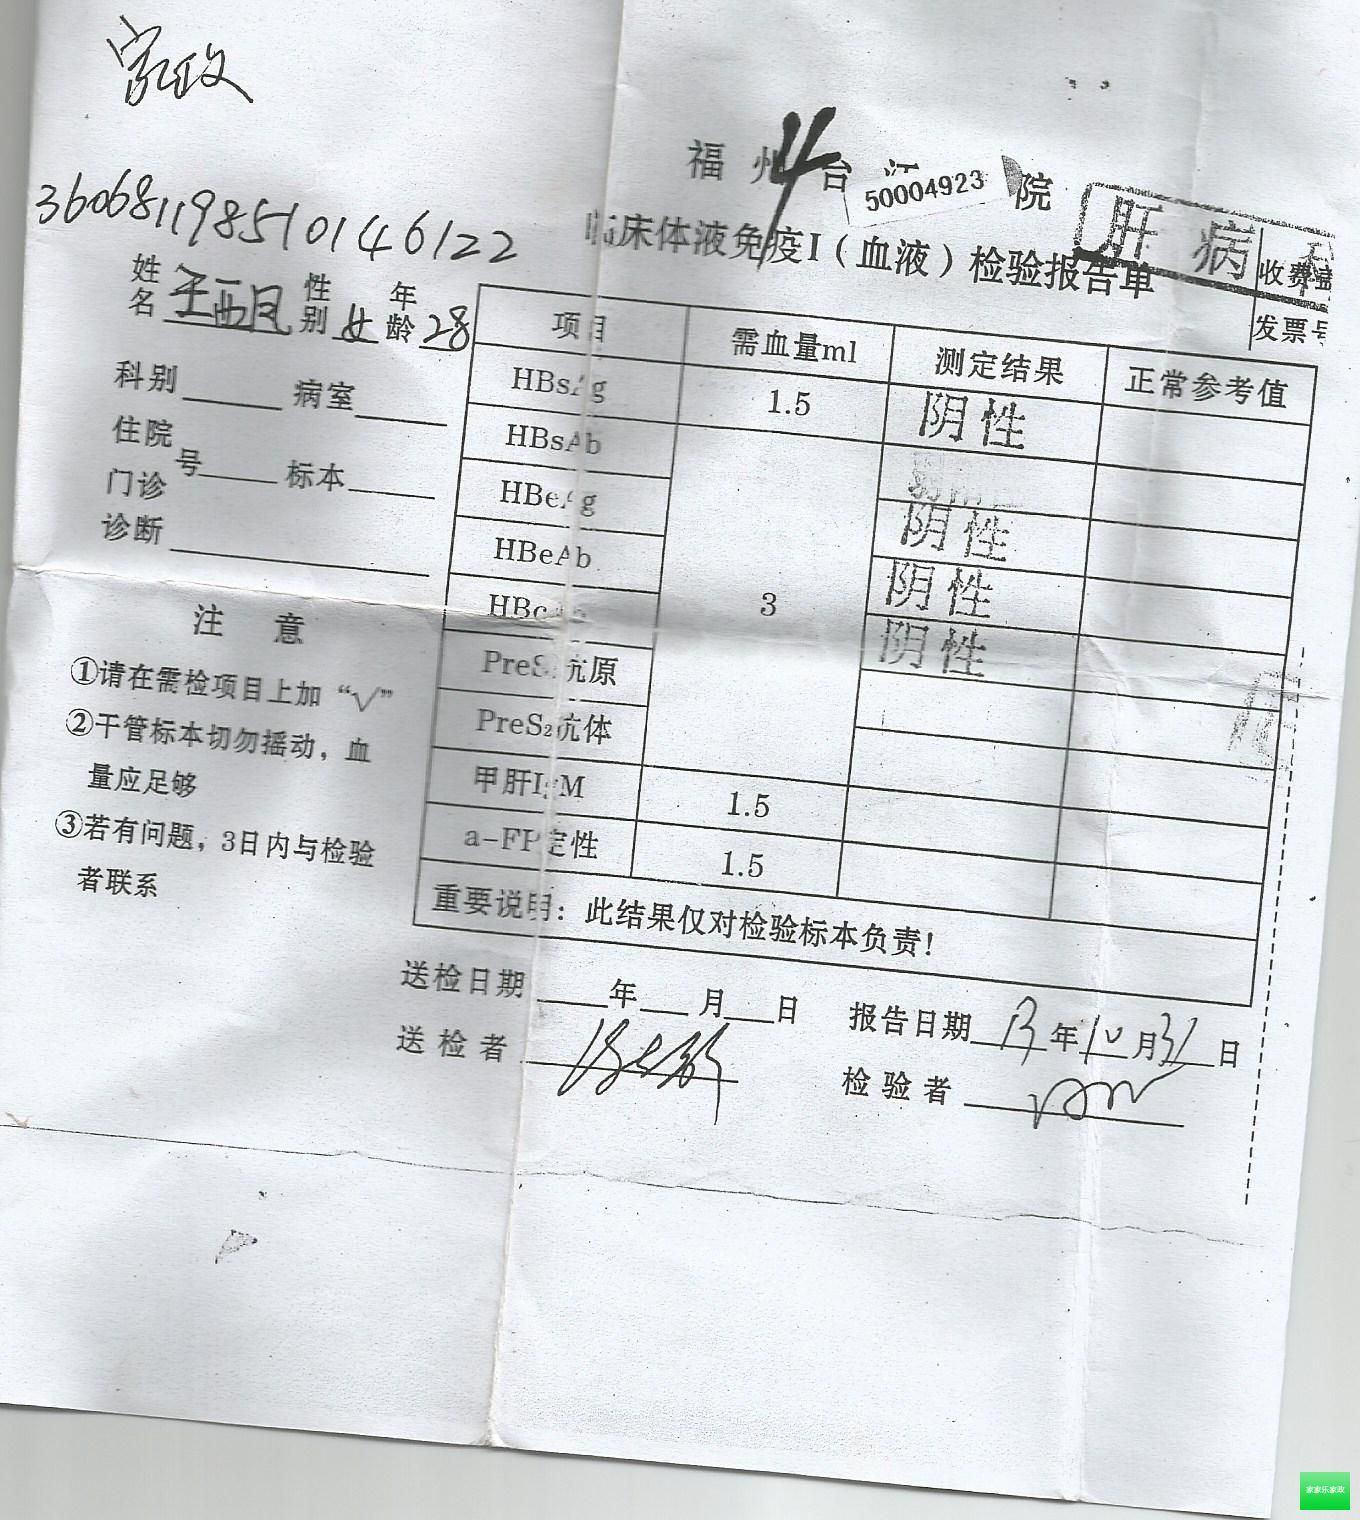 家政
福州台江 院
50004923
肝病科
360681198510146122
临床体液免疫I（血液）检验报告单
收费
发票号
姓名 王西凤 性别 女 年龄 28
科别 病室
住院号 标本
门诊
诊断
注 意
①请在需检项目上加“√”
②干管标本切勿摇动，血
量应足够
③若有问题，3日内与检验
者联系
项目 需血量ml 测定结果 正常参考值
HBsAg 1.5 阴性
HBsAb 弱阳性
HBeAg 阴性
HBeAb 3 阴性
HBcAb 阴性
PreS 抗原
PreS₂抗体
甲肝IgM 1.5
a-FP定性 1.5
重要说明：此结果仅对检验标本负责！
送检日期 年 月 日 报告日期 13 年 10 月 31 日
送检者
检验者
家家乐家政